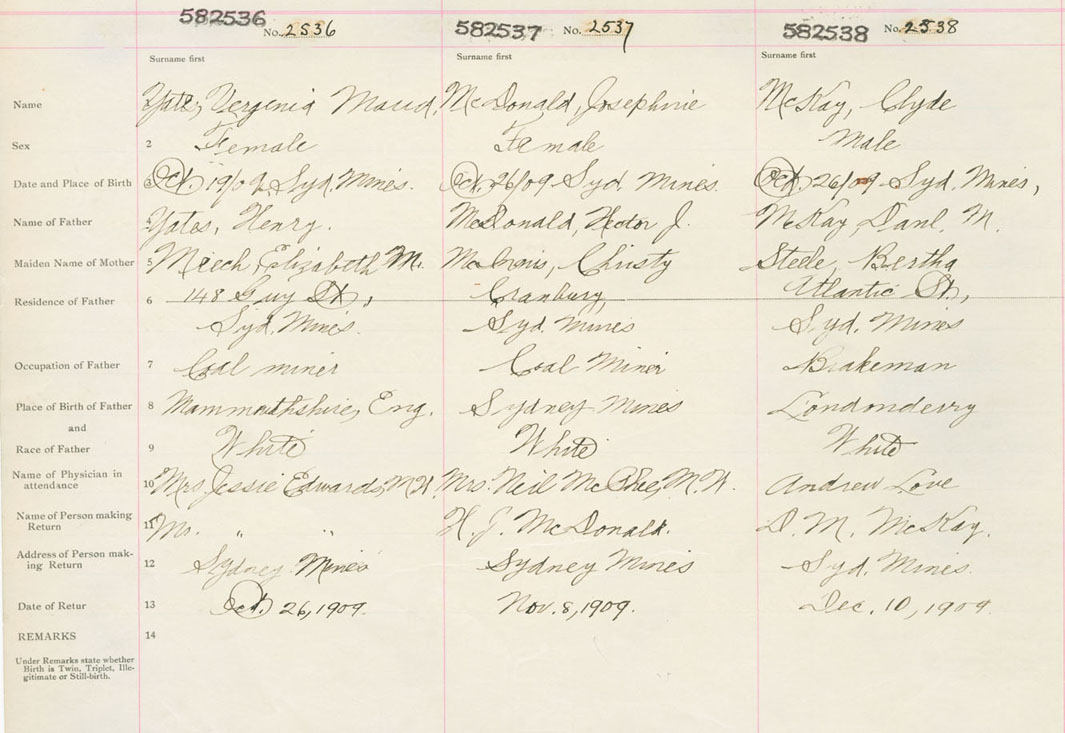 582536 No. 2536 582537 No. 2537 582538 No. 2538
Surname first Surname first Surname first
Name Yates, Vergenia Maud, McDonald, Josephine McKay, Clyde
Sex 2 Female Female Male
Date and Place of Birth 3 Oct. 19/09, Syd. Mines. Oct. 26/09 Syd. Mines. Oct. 26/09 Syd. Mines,
Name of Father 4 Yates, Henry. McDonald, Hector J. McKay Danl. M.
Maiden Name of Mother 5 Meech, Elizabeth M. Christy Steele, Bertha
Residence of Father 6 148 Guy St, Cranbury, Atlantic St,
Syd. Mines. Syd. Mines Syd. Mines
Occupation of Father 7 Coal miner Coal Miner Brakeman
Place of Birth of Father 8 Mammothshire, Eng. Sydney Mines Londonderry
and
Race of Father 9 White White White
Name of Physician in
attendance 10 Mrs Jessie Edwards, M.W. Mrs. Neil McPhee, M.W. Andrew Love
Name of Person making
Return 11 Mr. " " H. J. McDonald. D. M. McKay.
Address of Person mak-
ing Return 12 Sydney Mines Sydney Mines Syd. Mines.
Date of Retur 13 Oct. 26, 1909. Nov. 8, 1909. Dec. 10, 1909
REMARKS 14
Under Remarks state whether
Birth is Twin, Triplet, Ille-
gitimate or Still-birth.